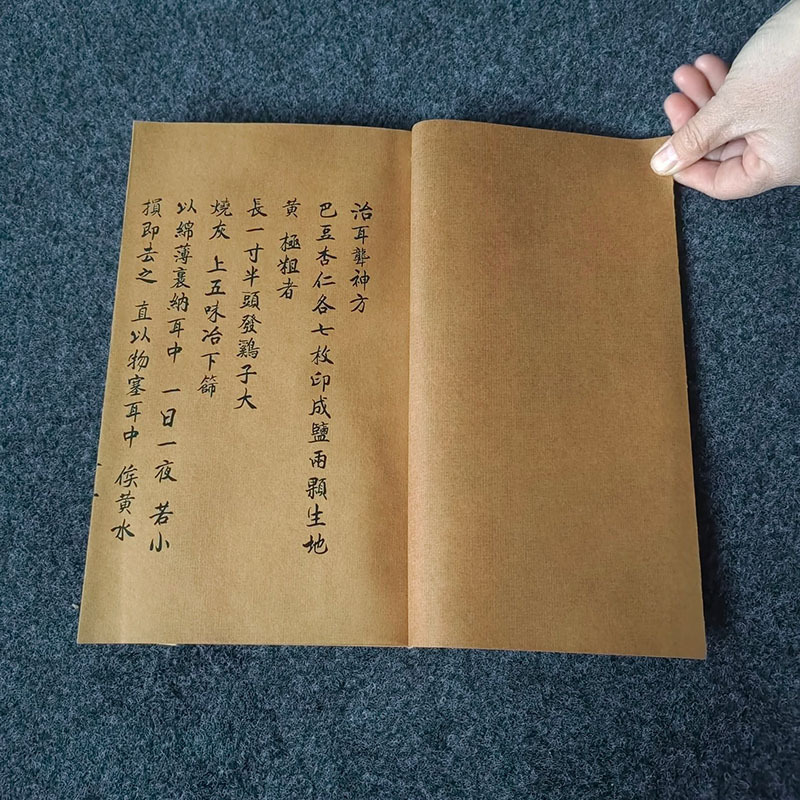 治耳聾神方
巴豆杏仁各七枚印成鹽兩顆生地
黄 極粗者
長一寸半頭發鷄子大
燒灰 上五味冶下篩
以綿薄裹納耳中 一日一夜 若小
損即去之 直以物塞耳中 俟黄水